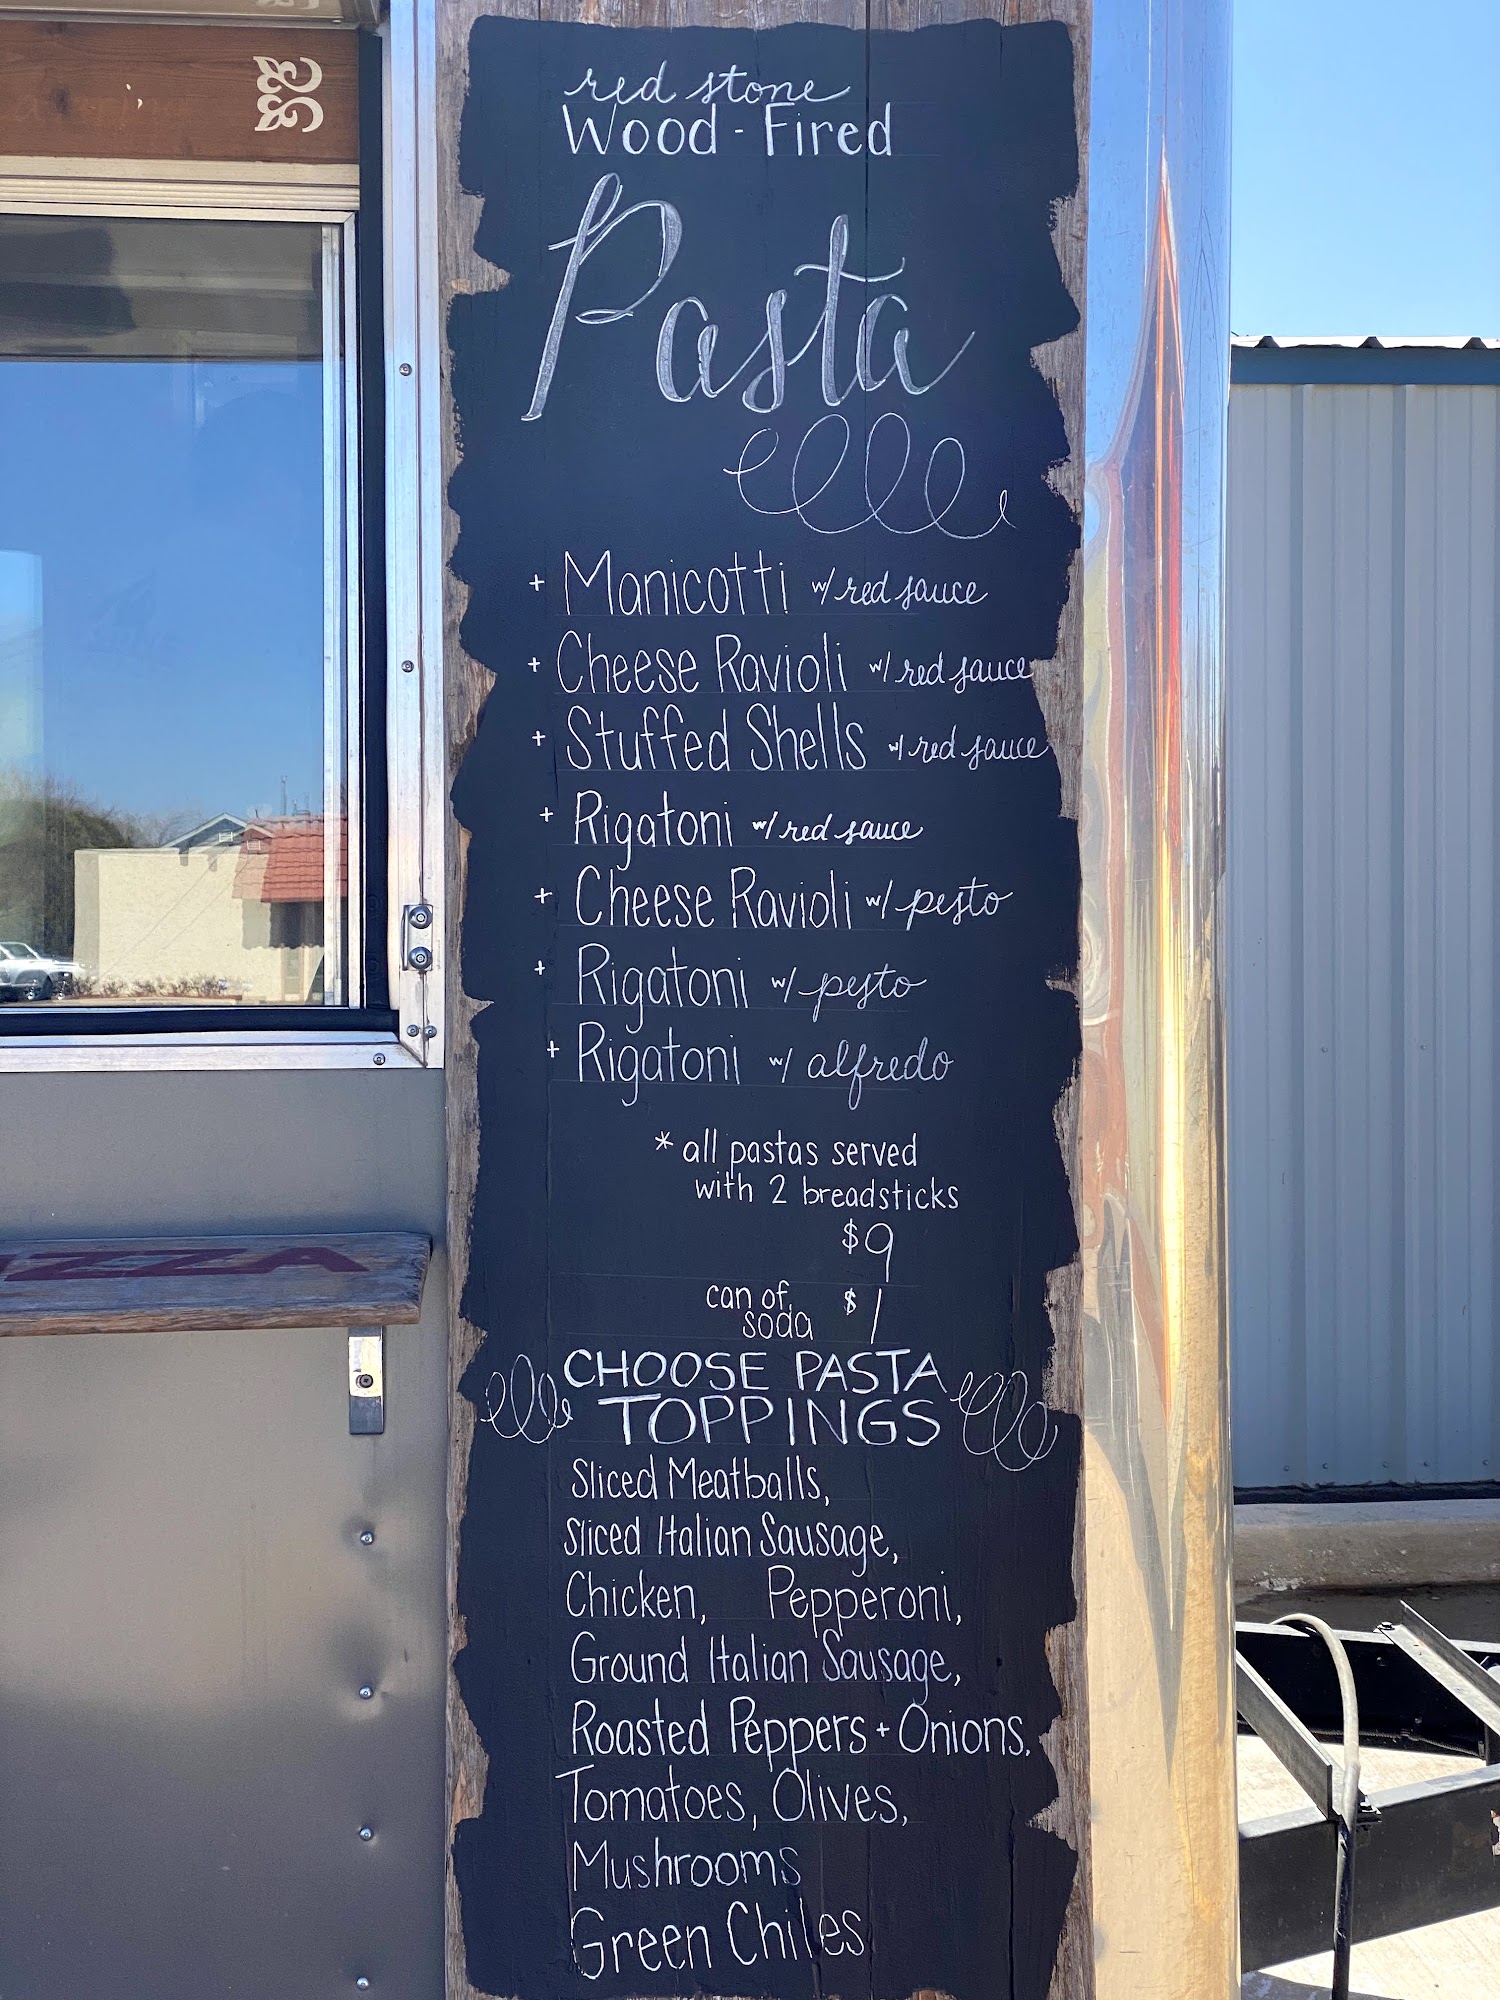 red stone
Wood - Fired
Pasta
+ Manicotti w/ red sauce
+ Cheese Ravioli w/ red sauce
+ Stuffed Shells w/ red sauce
+ Rigatoni w/ red sauce
+ Cheese Ravioli w/ pesto
+ Rigatoni w/ pesto
+ Rigatoni w/ alfredo
* all pastas served
with 2 breadsticks
$9
can of $1
soda
CHOOSE PASTA
TOPPINGS
Sliced Meatballs,
Sliced Italian Sausage,
Chicken, Pepperoni,
Ground Italian Sausage,
Roasted Peppers + Onions,
Tomatoes, Olives,
Mushrooms
Green Chiles
IZZA